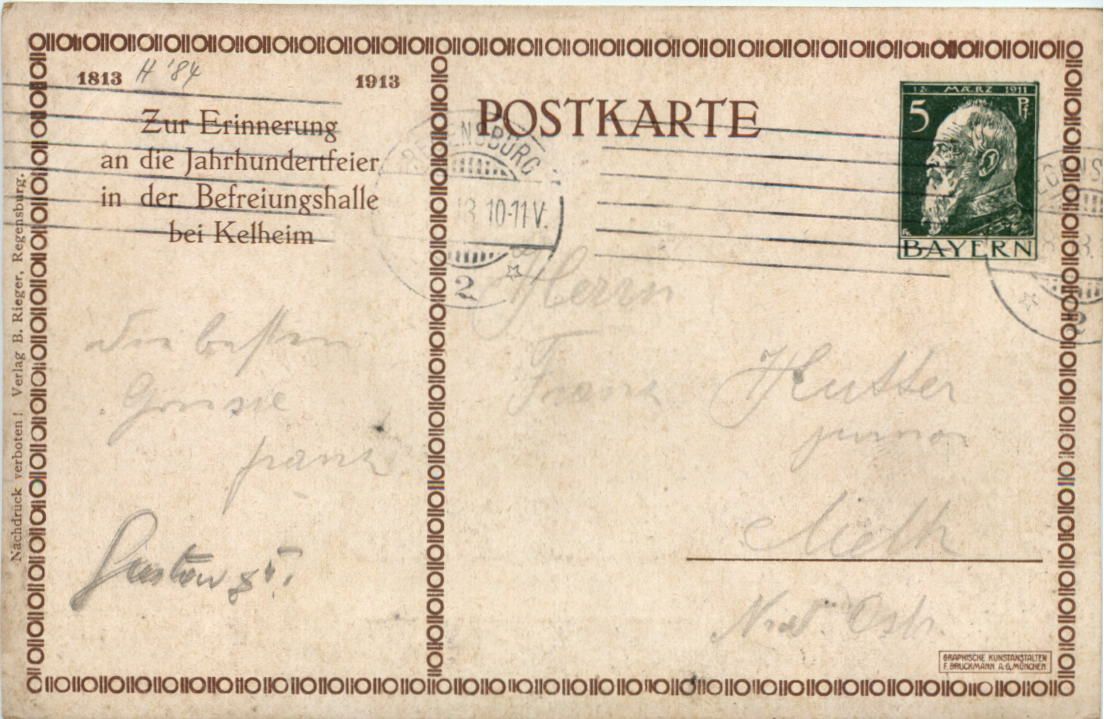 1813 H '84 1913
Zur Erinnerung
an die Jahrhundertfeier
in der Befreiungshalle
bei Kelheim
Nachdruck verboten! Verlag B. Rieger, Regensburg.
Die besten
Grüsse
Franz
POSTKARTE
12. MÄRZ 1911
5 Pf
BAYERN
REGENSBURG
13. 10-11 V.
2
REGENS
2
Herrn
Franz Hutter
junior
GRAPHISCHE KUNSTANSTALTEN
F. BRUCKMANN A.G. MÜNCHEN